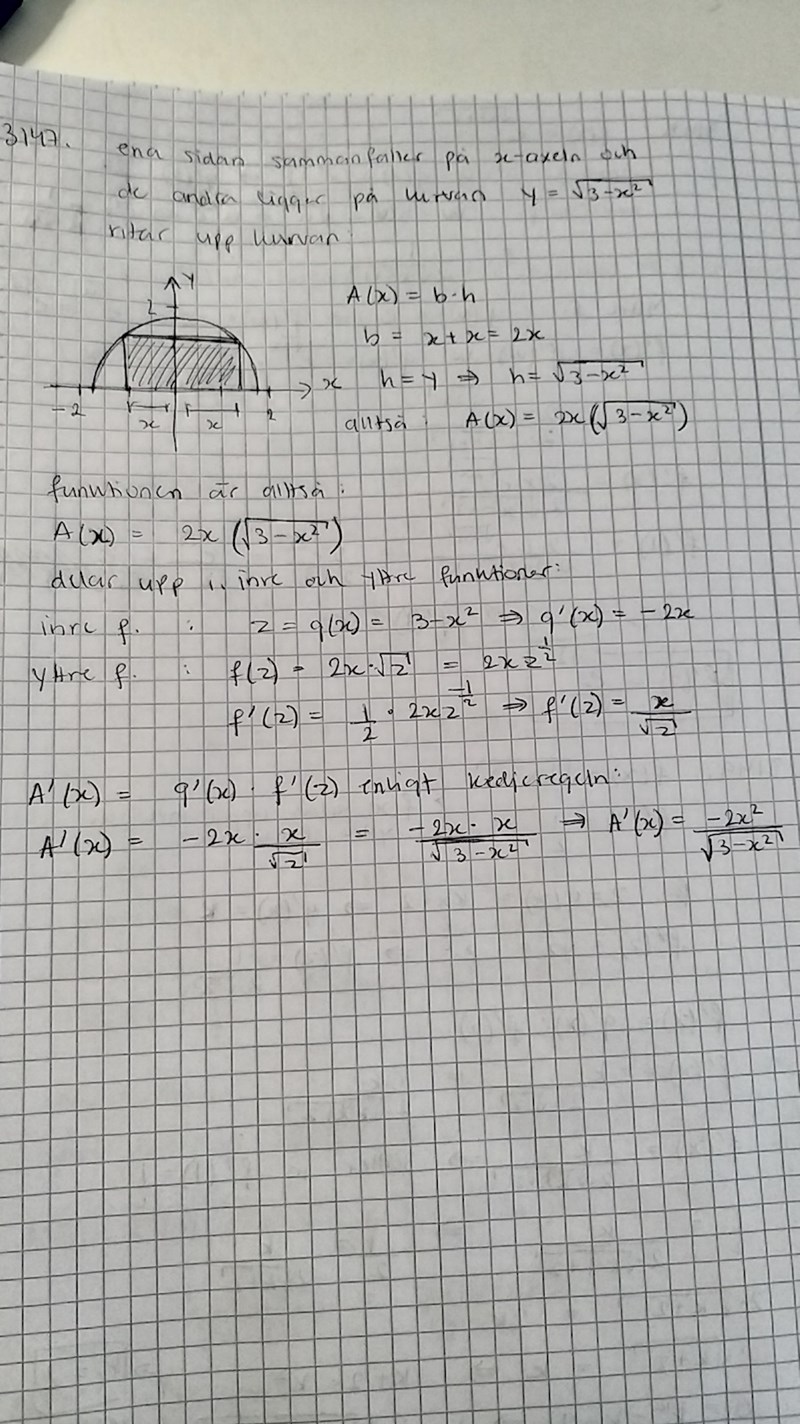 3147. ena sidan sammanfaller på x-axeln och
de andra ligger på kurvan y = √3-x²
ritar upp kurvan:
y
2
A(x) = b·h
b = x+x = 2x
x
h=y ⇒ h= √3-x²
-2
x
x
2
alltså : A(x) = 2x(√3-x²)
funktionen är alltså:
A(x) = 2x (√3-x²)
delar upp i inre och yttre funktioner:
inre f. : z = g(x) = 3-x² ⇒ g'(x) = -2x
yttre f. : f(z) = 2x·√z = 2xz^½
f'(z) = 1/2 · 2xz^-½ ⇒ f'(z) = x/√z
A'(x) = g'(x) · f'(z) enligt kedjeregeln:
A'(x) = -2x · x/√z = -2x·x/√3-x² ⇒ A'(x) = -2x²/√3-x²